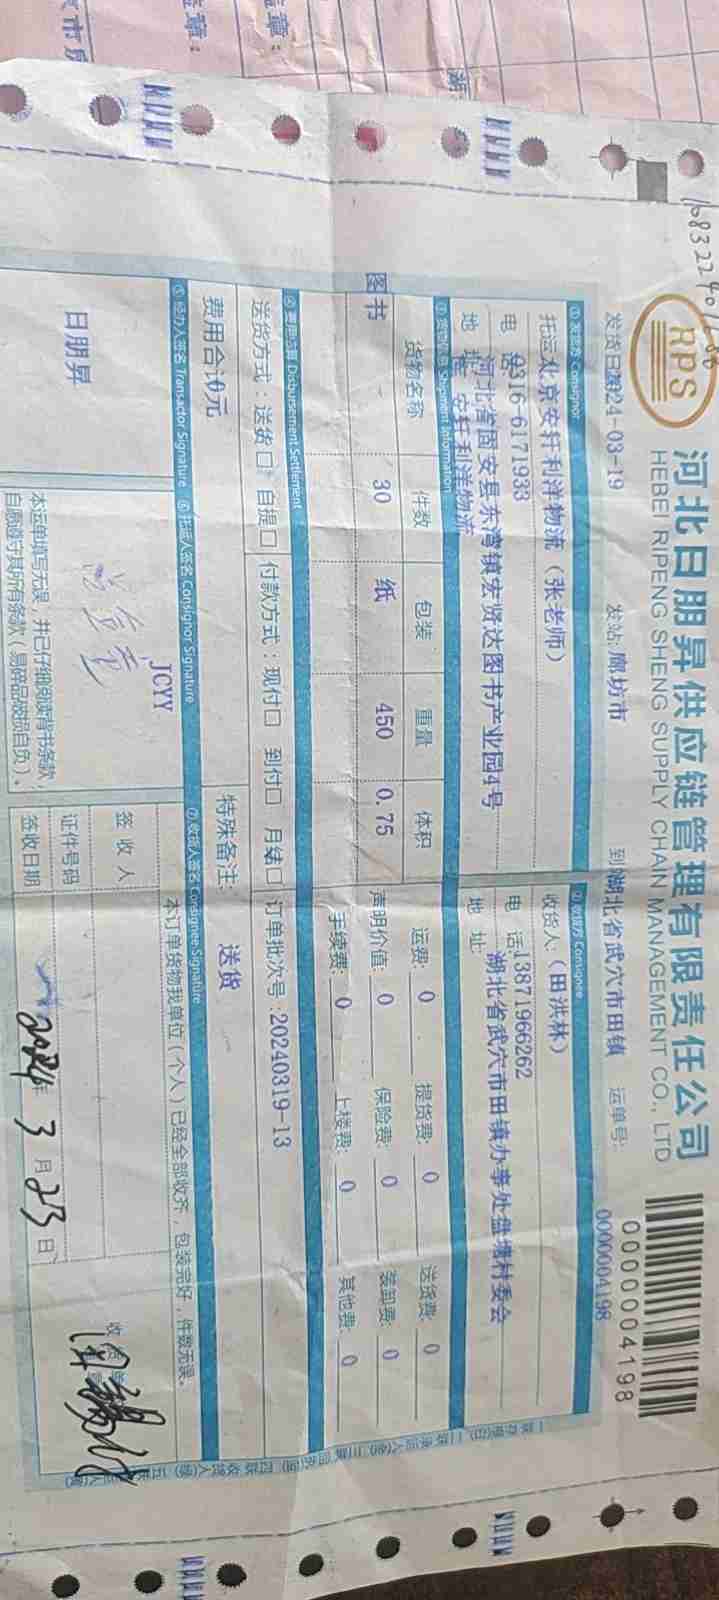 河北日朋昇供应链管理有限责任公司
HEBEI RIPENG SHENG SUPPLY CHAIN MANAGEMENT CO., LTD
RPS
0000004198
发货日期24-03-19 发站:廊坊市 到湖北省武穴市田镇 运单号: 0000004198
①发货方 Consignor
②收货方 Consignee
托运 北京安轩利洋物流（张老师）
收货人:（田洪林）
电 0316-6171933
电 话:13871966262
地 河北省固安县东湾镇宏贤达图书产业园4号
安轩利洋物流
地 址: 湖北省武穴市田镇办事处盘塘村委会
③货物信息 Shipment Information
货物名称 件数 包装 重量 体积
图书 30 纸 450 0.75
运费: 0 提货费: 0 送货费: 0
声明价值: 0 保险费: 0 装卸费: 0
手续费: 0 上楼费: 0 其他费: 0
④费用结算 Disbursement Settlement
送货方式：送货□ 自提□ 付款方式：现付□ 到付□ 月结□ 订单批次号:20240319-13
费用合:0元 特殊备注: 送货
⑤经办人签名 Transactor Signature
⑥托运人签名 Consignor Signature
⑦收货人签名 Consignee Signature
日朋昇
JCYY
本运单填写无误，并已仔细阅读背书条款，
自愿遵守其所有条款（易碎品破损自负）。
本订单货物我单位（个人）已经全部收齐，包装完好，件数无误。
签收人
证件号码
签收日期 2024年 3 月 23 日